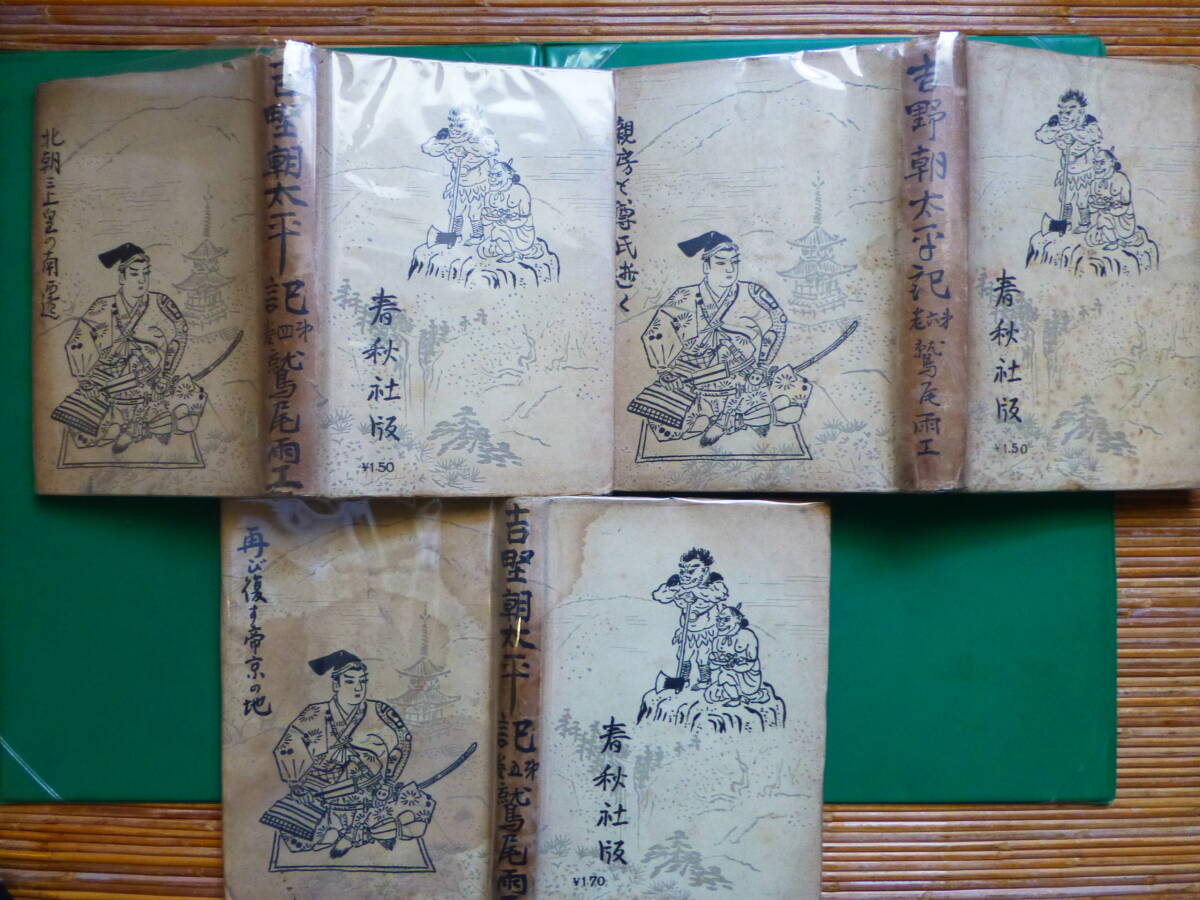 北朝三上皇の南遷
吉野朝太平記
第四巻
鷲尾雨工
春秋社版
¥1.50
親房も尊氏も逝く
吉野朝太平記
第六巻
鷲尾雨工
春秋社版
¥1.50
再び復す帝京の地
吉野朝太平記
第五巻
鷲尾雨工
春秋社版
¥1.70